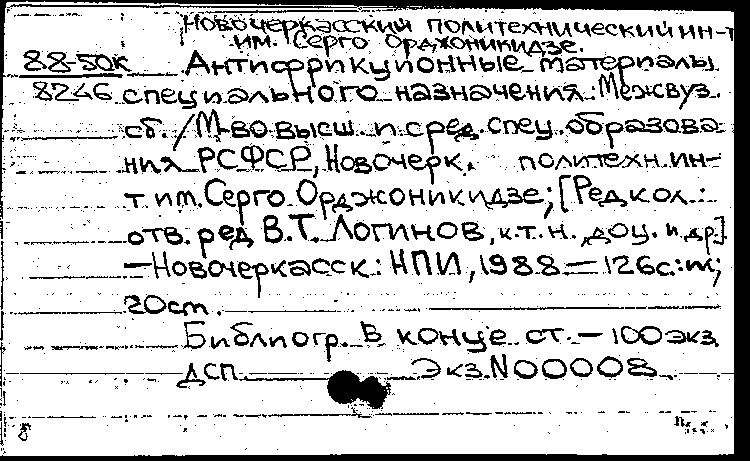 Новочеркасский политехнический ин-т
им. Серго Орджоникидзе.
88-50к Антифрикционные материалы
8246 специального назначения: Межвуз.
сб. / М-во высш. и сред. спец. образова-
ния РСФСР, Новочерк. политехн. ин-
т им. Серго Орджоникидзе; [Редкол.:
отв. ред В.Т. Логинов, к.т.н., доц. и др.]
— Новочеркасск: НПИ, 1988 — 126с.: ил;
20 cm.
Библиогр. в конце ст. — 100 экз
ДСП Экз. N 00008.